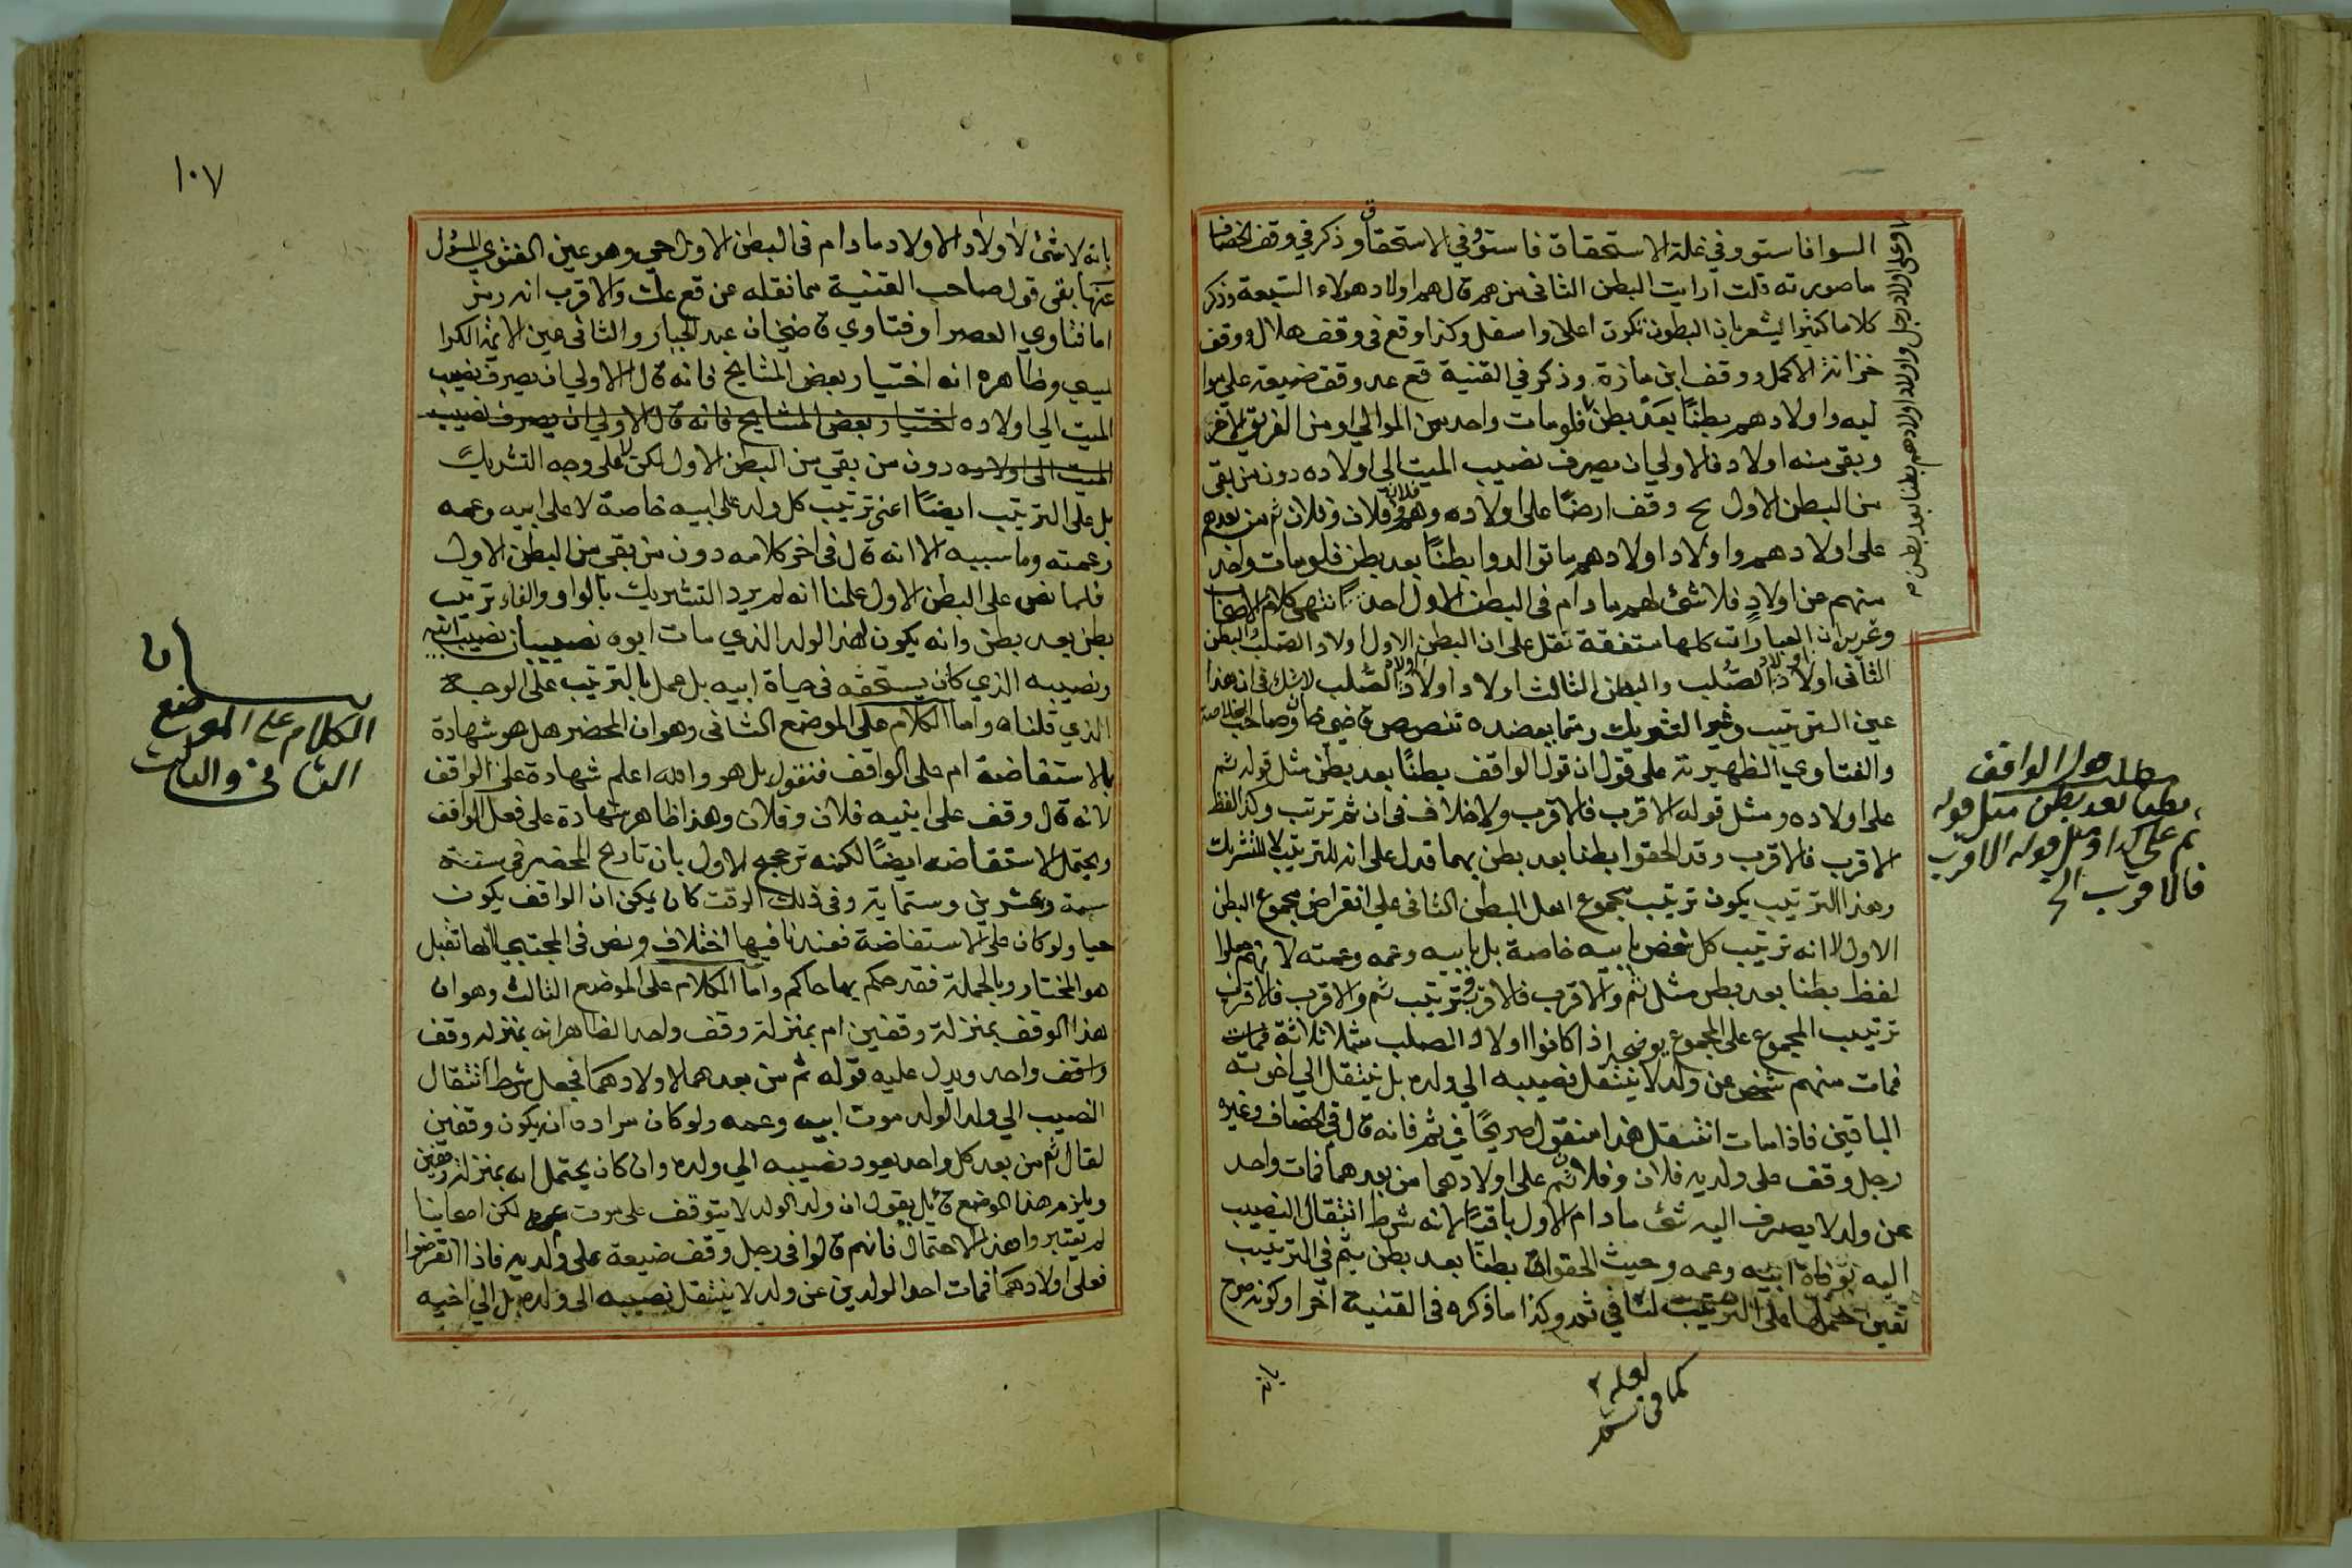 السوا فاستووفي غلة الاستحقاق فاستووا في الاستحقاق وذكر في وقف الخصاف
ما صورته قلت ارايت البطن الثاني من هم قال هم اولاد هولاء التسعة وذكر
كلاما كثيرا يشعر بان البطون تكون اعلا واسفل وكذا وقع في وقف هلال ووقف
خزانة الاكمل ووقف ابن مازة وذكر في القنية قع عد وقف ضيعته على موا
ليه واولادهم بطنًا بعد بطن فلو مات واحد من الموالي او من الفريق الاخر
وبقي منه اولاد فالاولي ان يصرف نصيب الميت الي اولاده دون من بقي
من البطن الاول بح وقف ارضًا على اولاده وهم فلان وفلان وفلان ثم من بعدهم
على اولادهم واولاد اولادهم ما توالدوا بطنًا بعد بطن فلو مات واحد
منهم عن اولاد فلا شئ لهم ما دام في البطن الاول احد انتهى كلام الاصحاب
وتحرير ان العبارات كلها متفقة تقل على ان البطن الاول اولاد الصلب والبطن
الثاني اولاد اولاد الصُلب والبطن الثالث اولاد اولاد اولاد الصُلب لا شك في ان هذا
عين الترتيب وغير التشريك ومما يعضده تنصيص قاضي خان وصاحب الخلاصة
والفتاوي الظهيرية على قول ان قول الواقف بطنًا بعد بطن مثل قوله ثم
على اولاده ومثل قوله الاقرب فالاقرب ولا خلاف في ان ثم ترتب وكذا لفظ
الاقرب فالاقرب وقد الحقوا بطنا بعد بطن بهما فدل على انه للترتيب لا للتشريك
وهذا الترتيب يكون ترتيب مجموع اهل البطن الثاني على انقراض مجموع البطن
الاول لا انه ترتيب كل شخص بابيه خاصة بل بابيه وعمه وعمته لانهم جعلوا
لفظ بطنا بعد بطن مثل ثم والاقرب فالاقرب وترتيب ثم والاقرب فالاقرب
ترتيب المجموع على المجموع يوضحه اذا كانوا اولاد الصلب مثلا ثلاثة فمات
فمات منهم شخص عن ولد لا ينتقل نصيبه الي ولده بل ينتقل الي اخوته
الباقين فاذا مات انتقل هذا منقول صريحًا في ثم فانه قال في الخصاف وغيره
رجل وقف على ولديه فلان وفلان ثم على اولادهما من بعدهما فمات واحد
عن ولد لا يصرف اليه شئ ما دام الاول باقيًا لانه شرط انتقال النصيب
اليه بوفاة ابيه وعمه وحيث الحقوا بطنًا بعد بطن بثم في الترتيب
تعين حملها على الترتيب لنا في ثم وكذا ما ذكره في القنية اخرا وكونه صرح
او على اولاد رجل واولاد اولادهم بطنا بعد بطن
مطلب قول الواقف
بطنا بعد بطن مثل قوله
ثم على كذا ومثل قوله الاقرب
فالاقرب الخ
لعله
كما في ثم
بانه
١٠٧
بانه لا شئ لاولاد الاولاد ما دام في البطن الاول حي وهو عين الفتوي المسؤل
عنها بقي قول صاحب القنية مما نقله عن قع عك والاقرب انه رمز
اما فتاوي العصر او فتاوي قاضيخان عبد الجبار والثاني عين الائمة الكرا
بيسي وظاهره انه اختيار بعض المشايخ فانه قال الاولي ان يصرف نصيب
الميت الي اولاده اختيار بعض المشايخ فانه قال الاولي ان يصرف نصيب
الميت الى اولاده دون من بقي من البطن الاول لكن لا على وجه التشريك
بل على الترتيب ايضًا اعني ترتيب كل ولد على ابيه خاصة لا على ابيه وعمه
وعمته وما سببه الا انه قال في اخر كلامه دون من بقي من البطن الاول
فلما نص على البطن الاول علمنا انه لم يرد التشريك بالواو والفاء ترتيب
بطن بعد بطن وانه يكون لهذا الولد الذي مات ابوه نصيبان نصيب ابيه
ونصيبه الذي كان يستحقه في حياة ابيه بل عمل بالترتيب على الوجه
الذي قلناه واما الكلام على الموضع الثاني وهو ان المحضر هل هو شهادة
بالاستفاضة ام على الواقف فنقول بل هو والله اعلم شهادة على الواقف
لانه قال وقف على ابنيه فلان وفلان وهذا ظاهر شهادة على فعل الواقف
ويحتمل الاستفاضه ايضًا لكنه ترجيح الاول بان تاريخ المحضر في سنة
ستة وعشرين وستماية وفي ذلك الوقت كان يمكن ان الواقف يكون
حيا ولو كان على الاستفاضة فعندنا فيها اختلاف ونص في المجتبي انها تقبل
هو المختار وبالجملة فقد حكم بها حاكم واما الكلام على الموضع الثالث وهو ان
هذا الوقف بمنزلة وقفين ام بمنزلة وقف واحد الظاهر انه بمنزله وقف
واقف واحد ويدل عليه قوله ثم من بعدهما لاولادهما فجعل شرط انتقال
النصيب الي ولد الولد موت ابيه وعمه ولو كان مراده ان يكون وقفين
لقال ثم من بعد كل واحد يعود نصيبه الي ولده وان كان يحتمل انه بمنزلة وقفين
ويلزم هذا الموضع قائل يقول ان ولد الولد لا يتوقف على موت عمه لكن اصحابنا
لم يعتبروا هذا الاحتمال فانهم قالوا في رجل وقف ضيعة على ولديه فاذا انقرضوا
فعلى اولادهما فمات احد الولدين عن ولد لا ينتقل نصيبه الى ولده بل الي اخيه
الكلام على الموضع
الثاني والثالث